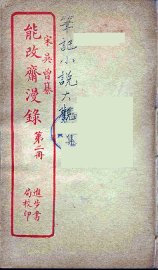 筆記小說大觀
宋吳曾纂
能改齋漫錄 第二冊
進步書
局校印